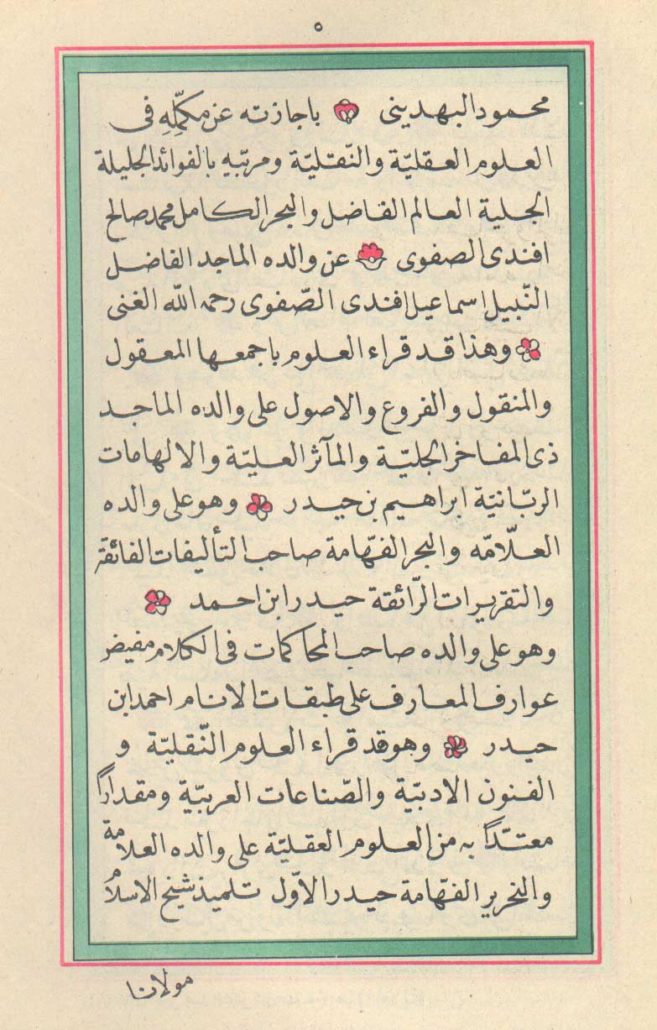 ٥
محمود البهدينى باجازته عن مكمّله فى
العلوم العقليّة والنّقليّة ومربّيه بالفوائد الجليلة
الجلية العالم الفاضل والبحر الكامل محمد صالح
افندى الصفوى عن والده الماجد الفاضل
النّبيل اسماعيل افندى الصّفوى رحمه الله الغنى
وهذا قد قراء العلوم باجمعها المعقول
والمنقول والفروع والاصول على والده الماجد
ذى المفاخر الجليّة والمآثر العليّة والالهامات
الربّانيّة ابراهيم بن حيدر وهو على والده
العلّامه والبحر الفهّامة صاحب التأليفات الفائقة
والتقريرات الرّائقة حيدر ابن احمد
وهو على والده صاحب المحاكمات فى الكلام مفيض
عوارف المعارف على طبقات الانام احمد ابن
حيدر وهو قد قراء العلوم النّقليّة و
الفنون الادبيّة والصّناعات العربيّة ومقداراً
معتدّاً به من العلوم العقليّة على والده العلامة
والنحرير الفهّامة حيدر الاوّل تلميذ شيخ الاسلام
مولانا